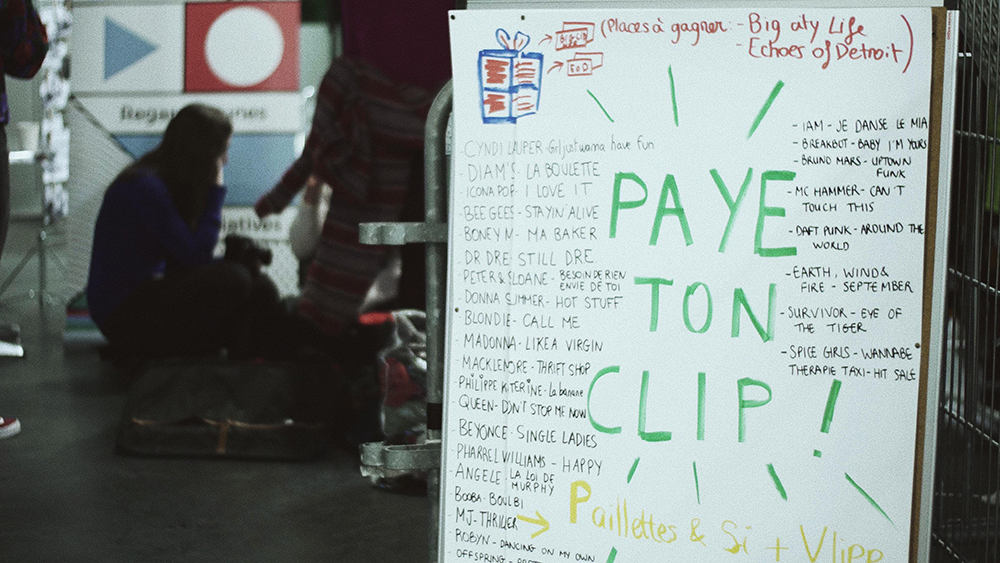 (Places à gagner: - Big city Life
- Echoes of Detroit)
BIG CITY
E.O.D
CYNDI LAUPER - Girl just wanna have fun
DIAM'S - LA BOULETTE
ICONA POP - I LOVE IT
BEE GEES - STAYIN' ALIVE
BONEY M - MA BAKER
DR DRE STILL DRE
PETER & SLOANE - BESOIN DE RIEN
ENVIE DE TOI
DONNA SUMMER - HOT STUFF
BLONDIE - CALL ME
MADONNA - LIKE A VIRGIN
MACKLEMORE - THRIFT SHOP
PHILIPPE KATERINE - La banane
QUEEN - DON'T STOP ME NOW
BEYONCE - SINGLE LADIES
PHARREL WILLIAMS - HAPPY
ANGELE - LA LOI DE
MURPHY
BOOBA - BOULBI
MJ - THRILLER
ROBYN - DANCING ON MY OWN
OFFSPRING -
PAYE
TON
CLIP !
- IAM - JE DANSE LE MIA
- BREAKBOT - BABY I'M YOURS
- BRUNO MARS - UPTOWN
FUNK
- MC HAMMER - CAN'T
TOUCH THIS
- DAFT PUNK - AROUND THE
WORLD
- EARTH, WIND &
FIRE - SEPTEMBER
- SURVIVOR - EYE OF
THE TIGER
- SPICE GIRLS - WANNABE
THERAPIE TAXI - HIT SALE
Paillettes & Si + Vlipp